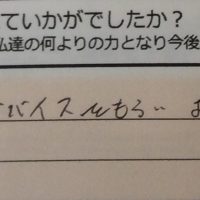 ていかがでしたか？
私達の何よりの力となり今後
バイスをもらい お